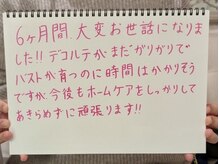 6ヶ月間 大変お世話になりま
した!! デコルテが まだがりがりで
バストが育つのに時間はかかりそう
ですが、今後もホームケアをしっかりして
あきらめずに頑張ります!!